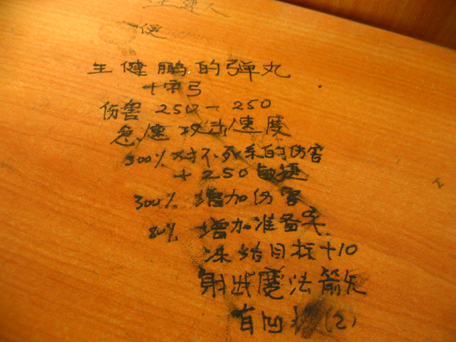 王健鹏的弹丸
十字弓
伤害 250-250
急速攻击速度
300% 对不死系的伤害
+250 敏捷
300% 增加伤害
80% 增加准备率
冻结目标+10
射出魔法箭矢
有凹槽(2)